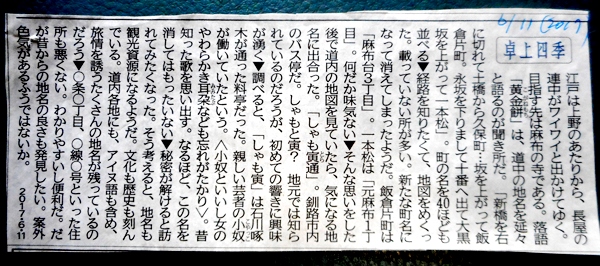 6/11 (2017)
卓上四季
江戸は上野のあたりから、長屋の
連中がワイワイと出かけてゆく。
目指す先は麻布の寺である。落語
「黄金餅」は、道中の地名を延々
と語るのが聞き所だ。「新橋を右
に切れて土橋から久保町…坂を上がって飯
倉片町、永坂を下りまして十番へ出て大黒
坂を上がって一本松」。町の名を40ほども
並べる▼経路を知りたくて、地図をめくっ
た。載っていない所が多い。新たな町名に
なって消えてしまったようだ。飯倉片町は
「麻布台3丁目」、一本松は「元麻布1丁
目」。何だか味気ない▼そんな思いをした
後で道内の地図を見ていたら、気になる地
名に出合った。「しゃも寅通」。釧路市内
のバス停だ。しゃもと寅？ 地元では知ら
れているのだろうが、初めての響きに興味
が湧く▼調べると、「しゃも寅」は石川啄
木が通った料亭だった。親しい芸者の小奴
が働いていたという。〈小奴といひし女の
やわらかき耳朶なども忘れがたかり〉。昔
知った歌を思い出す。なるほど、この名を
消してはもったいない▼秘密が解けると訪
れてみたくなった。そう考えると、地名も
観光資源になるようだ。文化も歴史も刻ん
でいる。道内各地にも、アイヌ語も含め、
旅情を誘うたくさんの地名が残っているの
だろう▼○条○丁目、○線○号といった住
所も悪くない。わかりやすいし便利だ。だ
が昔からの地名の良さも発見したい。案外
色気があるふうではないか。 2017・6・11